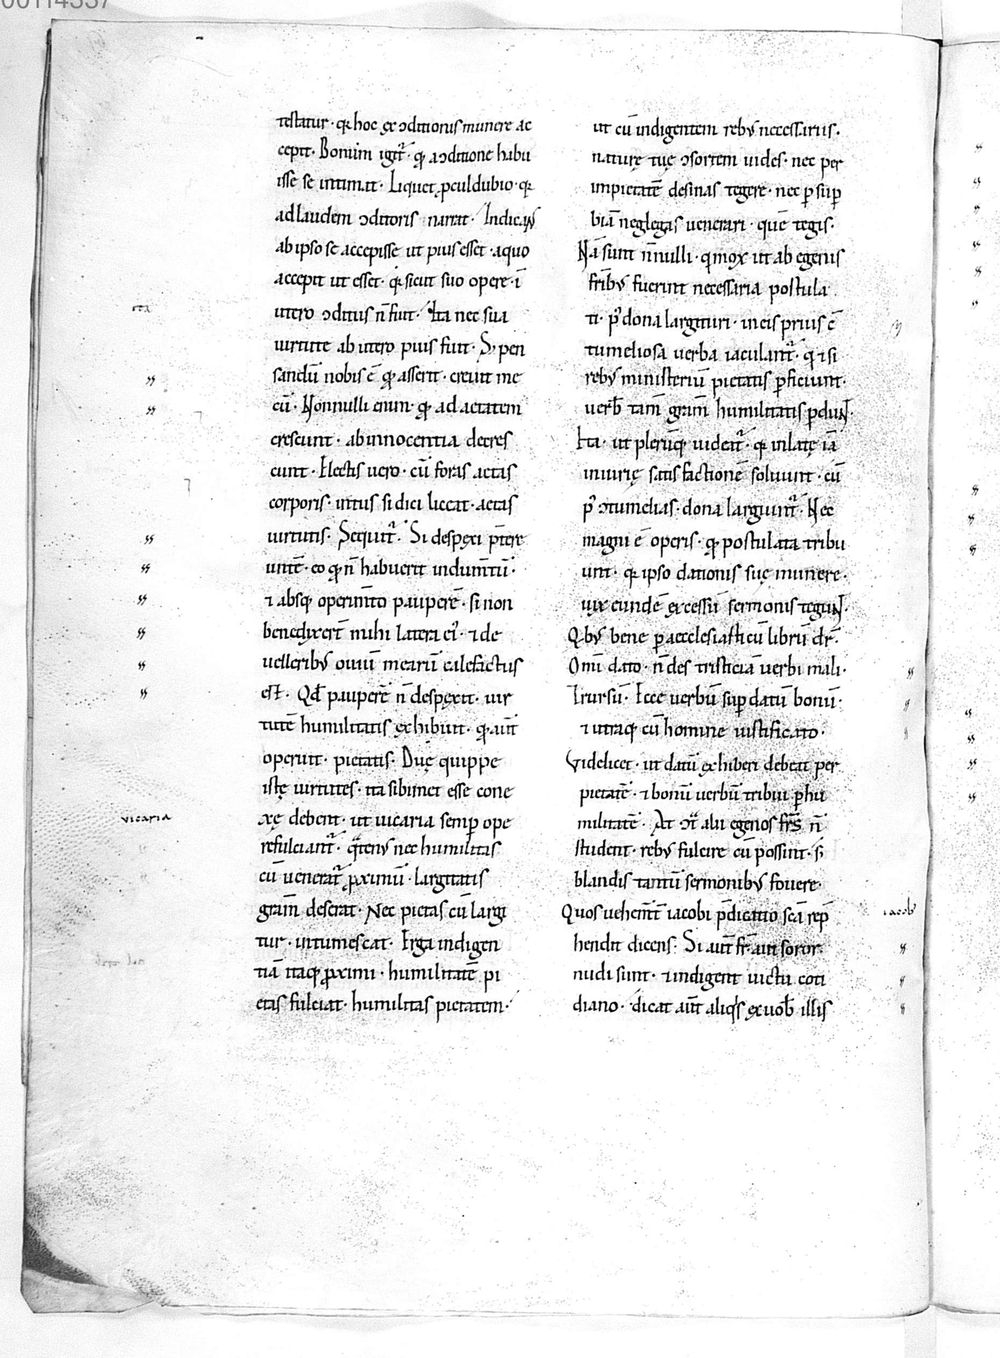 00114337
testatur · qꝛ hoc ex ↄditionis munere ac
cepit · Bonum igit᷑ · qd̄ a ↄditione habu
isse se intimat · Liquet ꝓculdubio · qꝛ
ad laudem ↄditoris narrat · Indicans
ab ipso se accepisse ut pius esset · a quo
accepit ut esset · qꝛ sicut suo opere · ī
utero ↄditus n̄ fuit · Ita nec sua
uirtute ab utero pius fuit · S; pen
sandū nobis ē qd̄ asserit · creuit me
cū · Nonnulli enim · qd̄ ad aetatem
crescunt · ab innocentia decres
cunt · Electis uero · cū foras aetas
corporis · intus si dici liceat · aetas
uirtutis · Sequit᷑ · Si despexi p̄tere
untē · eo qd̄ n̄ habuerit indum̄tū ·
⁊ absq; operim̄to pauperē · si non
benedixer̄t mihi latera ei᷒ · ⁊ de
uelleribꝰ ouiū mearū calefactus
est · Qd̄ pauperē n̄ despexit · uir
tutē humilitatis exhibuit · qd̄ aut̄
operuit · pietatis · Duę quippe
istę uirtutes · ita sibimet esse cone
xę debent · ut uicaria semp̄ ope
refulciant᷑ · qt̄enꝰ nec humilitas
cū uenerat᷑ ꝓximū · largitatis
gram̄ deserat · Nec pietas cū largi
tur · intumescat · Erga indigen
tiā itaq; ꝓximi · humilitatē pi
etas fulciat · humilitas pietatem ·
ut cū indigentem rebꝰ necessariis ·
naturę tuę ↄsortem uides · nec per
impietatē desinas tegere · nec ꝑ sup̄
biā neglegas uenerari · quē tegis ·
Nā sunt n̄nulli · qui mox ut ab egenis
fr̄ibꝰ fuerint necessaria postula
ti · p᷒ dona largituri · in eis prius ↄ̄
tumeliosa uerba iaculant᷑ · qui ⁊ si
rebꝰ ministeriū pietatis ꝑficiunt ·
uerb̄ tam̄ gram̄ humilitatis ꝑdunt ·
Ita · ut plerūq; uideat᷑ · qꝛ inlatę iā
iniurię satisfactionē soluunt · cū
p᷒ ↄtumelias · dona largiunt᷑ · Nec
magni ē operis · qd̄ postulata tribu
unt · qꝛ ipso dationis suę munere ·
uix eundē excessū sermonis tegunt ·
Qbꝰ bene ꝑ aecclesiasticū librū dr̄ ·
Omi dato · n̄ des tristiciā uerbi mali ·
Et rursū · Ecce uerbū sup̄ datū bonū ·
⁊ utraq; cū homine iustificato ·
Videlicet · ut datū exhiberi debeat per
pietatē · ⁊ bonū uerbū tribui ꝑ hu
militatē · At ↄt᷑ alii egenos fr̄s n̄
student · rebꝰ fulcire cū possint · s;
blandis tantū sermonibꝰ fouere ·
Quos uehem̄t iacobi p̄dicatio sc̄a rep̄
hendit dicens · Si aut̄ fr̄ aut soror
nudi sunt · ⁊ indigent uictu coti
diano · dicat aut̄ aliqs̄ ex uob̄ illis
vicaria
iacob᷒